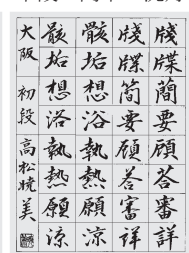 牋牒簡要顧答審詳
牋牒簡要顧答審詳
骸垢想浴執熱願涼
骸垢想浴執熱願涼
大阪 初段 高松暁美